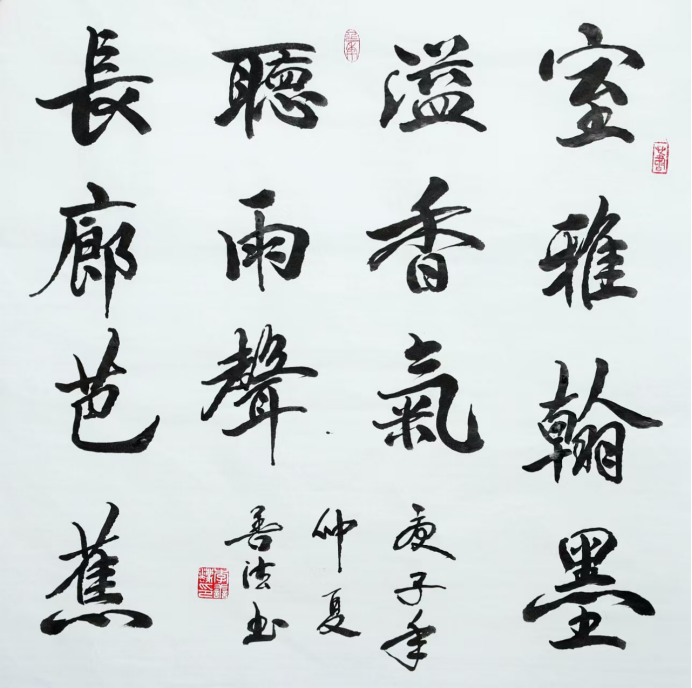 室雅翰墨
溢香氣
長廊芭蕉
聽雨聲
庚子年
仲夏
善法书